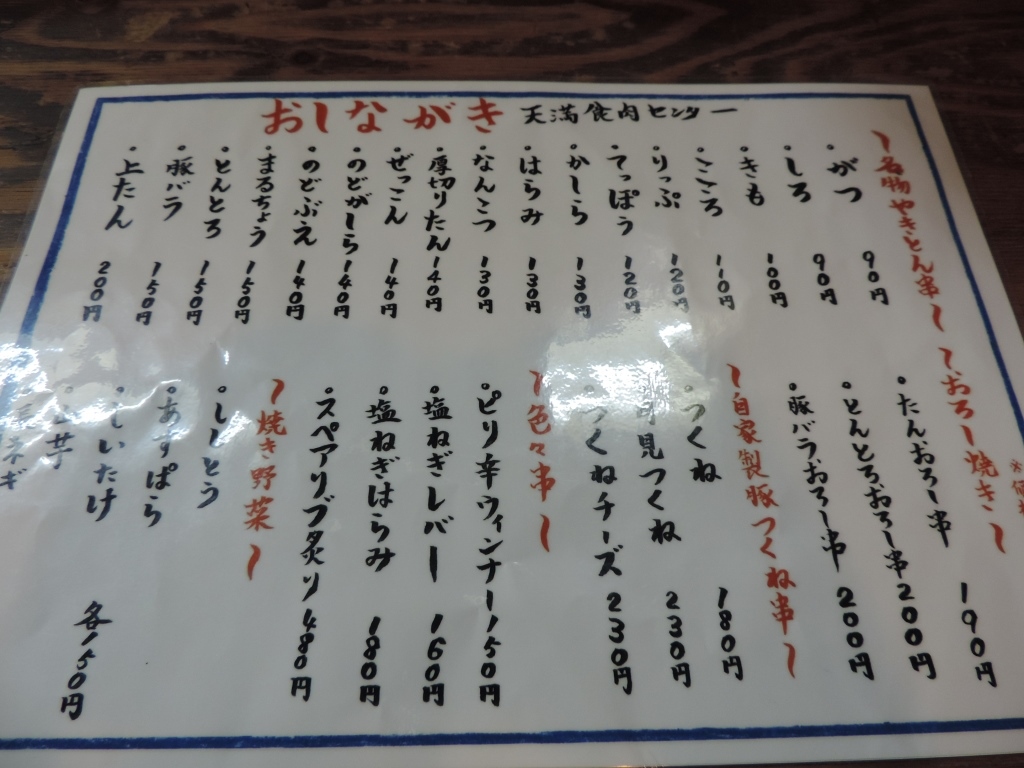 おしながき 天満食肉センター
～名物やきとん串～
・がつ 90円
・しろ 90円
・きも 100円
・こころ 110円
・りっぷ 120円
・てっぽう 120円
・かしら 130円
・はらみ 130円
・なんこつ 130円
・厚切りたん 140円
・ぜっこん 140円
・のどがしら 140円
・のどぶえ 140円
・まるちょう 150円
・とんとろ 150円
・豚バラ 150円
・上たん 200円
～おろし焼き～
190円
・たんおろし串 200円
・とんとろおろし串 200円
・豚バラおろし串
～自家製豚つくね串～
・つくね 180円
月見つくね 230円
・つくねチーズ 230円
～色々串～
・ピリ辛ウィンナー 150円
・塩ねぎレバー 160円
・塩ねぎはらみ 180円
・スペアリブ炙り 480円
～焼き野菜～
・ししとう
・あすぱら
・しいたけ
芋
ネギ
各150円